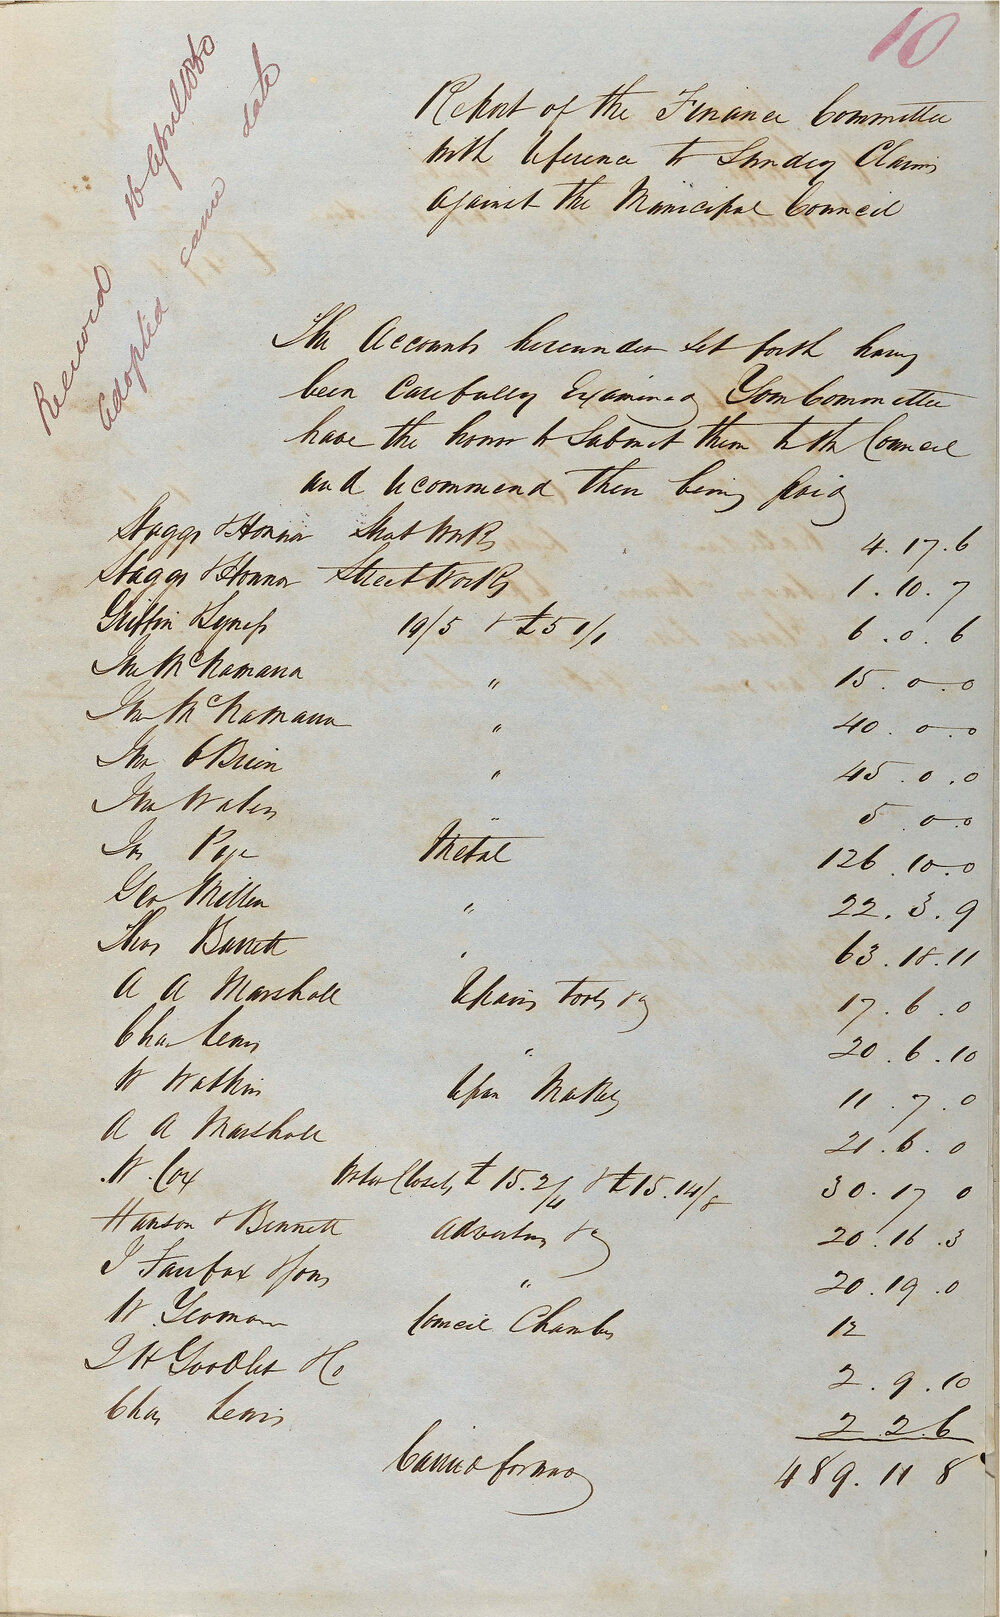 10
Received 16 April 1860
adopted same date
Report of the Finance Committee
with reference to Sundry Claims
against the Municipal Council
The Accounts hereunder set forth having
been Carefully Examined Your Committee
have the honor to Submit them to the Council
and recommend their being paid
Staggs & Honnor Street Works 4.17.6
Staggs & Honnor Street Works 1.10.7
Griffin & Syness 19/5 & £5 1/1 6.0.6
Jno McNamara " 15.0.0
Jno McNamara " 40.0.0
Jno O'Brien " 45.0.0
Jno " 5.0.0
Jas Pope Metal 126.10.0
Geo Miller " 22.3.9
Thos Barrett " 63.18.11
A A Marshall Repairs Tools &c 17.6.0
Chas Lewis " 20.6.10
W Watkins 11.7.0
A A Marshall 21.6.0
W. Cox Water Closets £15.2/4 & £15.14/8 30.17 0
Hanson & Bennett Advertising &c 20.16.3
J Fairfax & Sons " 20.19.0
W. Yeoman Council Chamber 12
J H Goodlet & Co 2.9.10
Chas Lewis 2 2.6
Carried forward 489.11 8